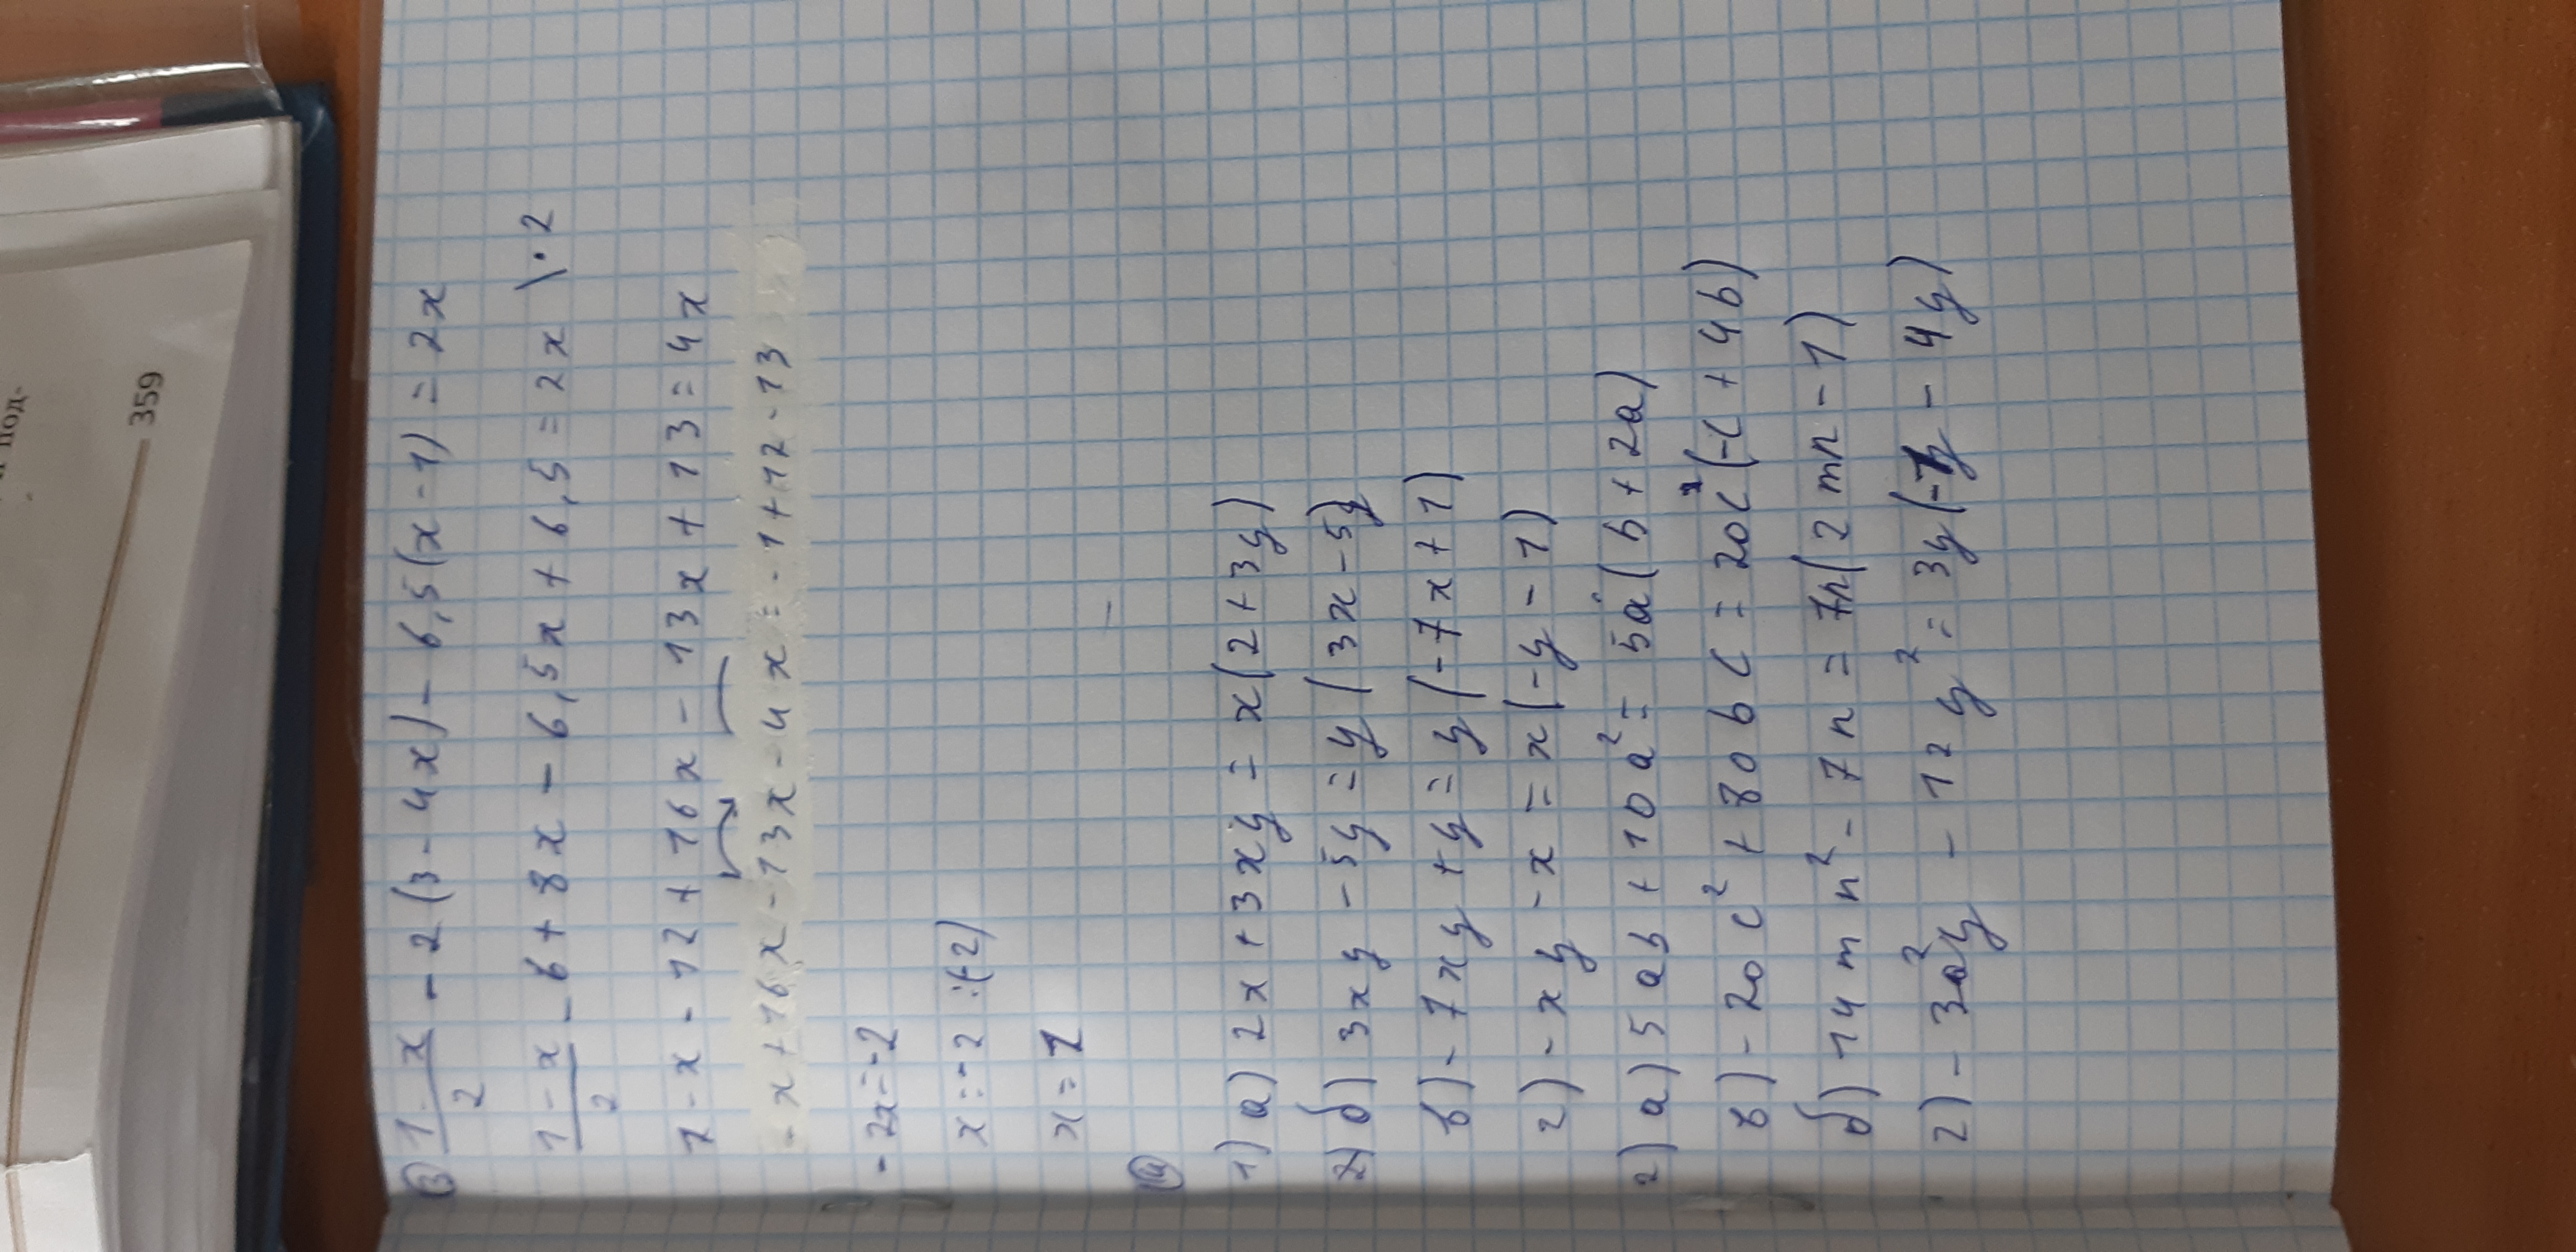 под-
359
③ 1-x/2 - 2(3-4x) - 6,5(x-1) = 2x
1-x/2 - 6+8x - 6,5x + 6,5 = 2x \·2
1-x - 12+16x - 13x + 13 = 4x
-x+16x-13x-4x = -1+12-13
-2x=-2
x=-2:(-2)
x=1
④
1) а) 2x+3xy = x(2+3y)
2) б) 3xy -5y = y(3x-5)
в) -7xy +y = y(-7x+1)
г) -xy -x = x(-y-1)
2) а) 5ab + 10a² = 5a(b+2a)
в) -20c² + 80bc = 20c(-c+4b)
б) 14mn² - 7n = 7n(2mn-1)
г) -3a²y - 12y² = 3y(-y-4y)